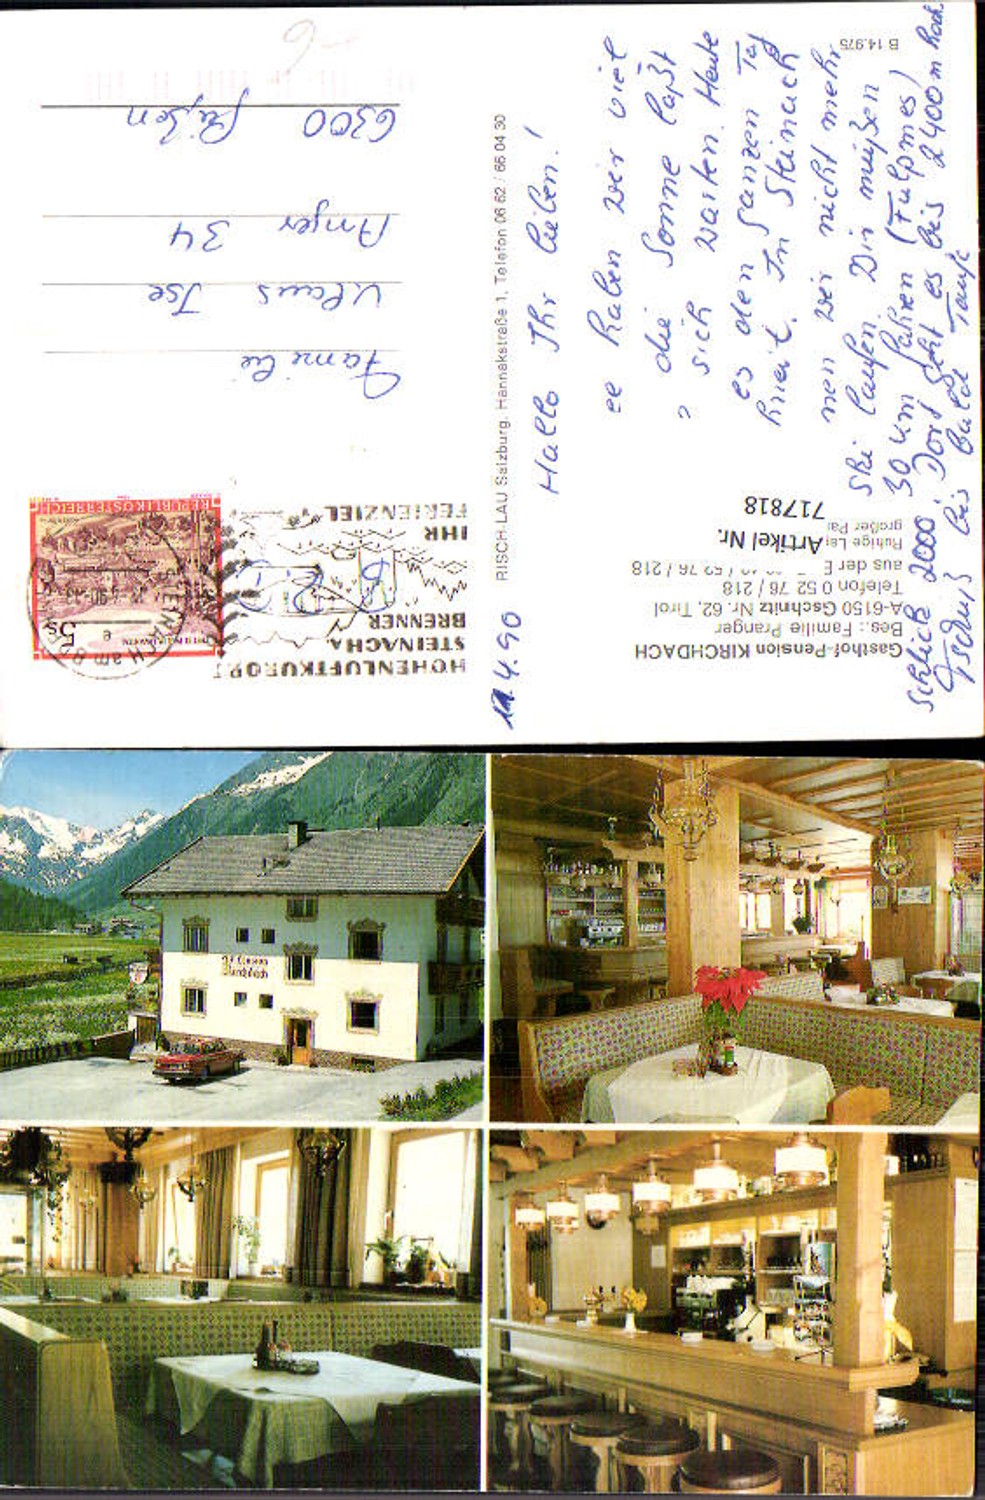 Gasthof-Pension KIRCHDACH
Bes.: Familie Pranger
A-6150 Gschnitz Nr. 62, Tirol
Telefon 0 52 76 / 218
aus der
52 76 / 218
Ruhige
großer
Artikel Nr.
717818
B 14.975
11.4.90
Hallo Ihr Lieben!
Schnee haben wir viel
die Sonne laßt
sich warten. Heute
es den ganzen Tag
In Steinach
nen wir nicht mehr
Ski laufen. Wir müßen
30 km fahren (Fulpmes)
Schlick 2000. Dort geht es bis 2400m hoch
Tschuß bis bald Tanja
RISCH-LAU Salzburg, Hannakstraße 1, Telefon 06 62 / 66 04 30
HÖHENLUFTKURORT
STEINACH A
BRENNER
IHR
FERIENZIEL
REPUBLIK ÖSTERREICH
5 S
STEINACH am
Familie
Klaus Ise
Anger 34
6300 Gießen
Kirchdach